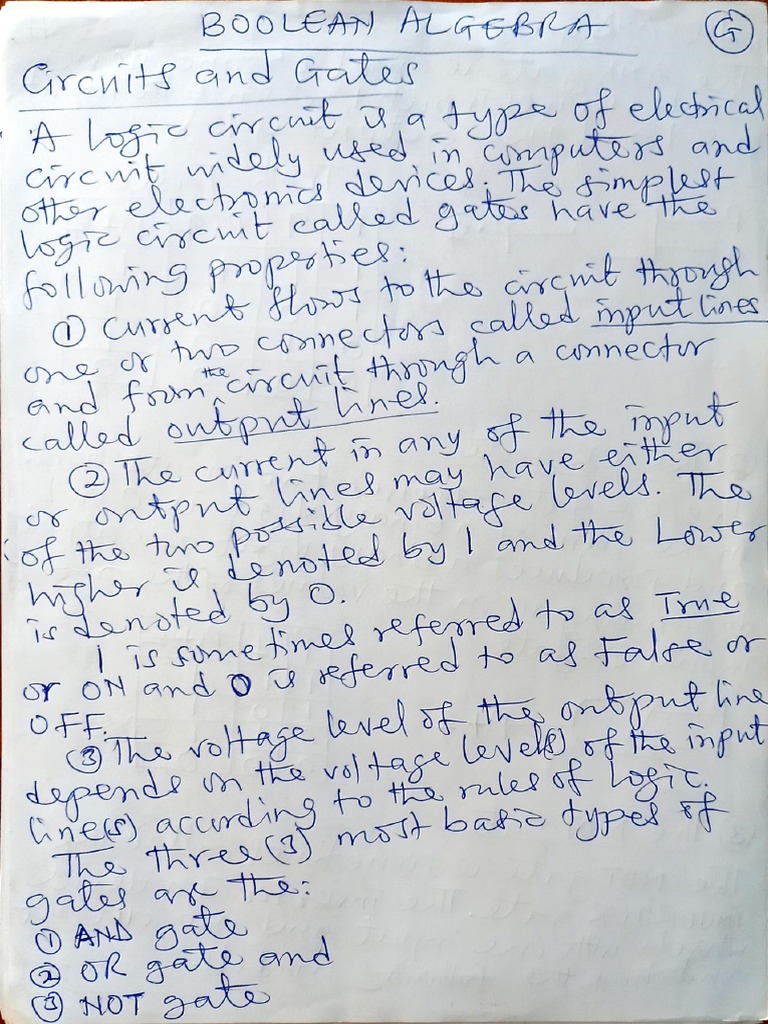 BOOLEAN ALGEBRA
G
Circuits and Gates
A logic circuit is a type of electrical
circuit widely used in computers and
other electronics devices. The simplest
logic circuit called gates have the
following properties:
① Current flows to the circuit through
one or two connectors called input lines
and from the circuit through a connector
called output lines.
② The current in any of the input
or output lines may have either
of the two possible voltage levels. The
higher is denoted by 1 and the Lower
is denoted by 0.
1 is sometimes referred to as True
or ON and 0 is referred to as False or
OFF.
③ The voltage level of the output line
depends on the voltage level(s) of the input
line(s) according to the rules of logic.
The three (3) most basic types of
gates are the:
① AND gate
② OR gate and
③ NOT gate